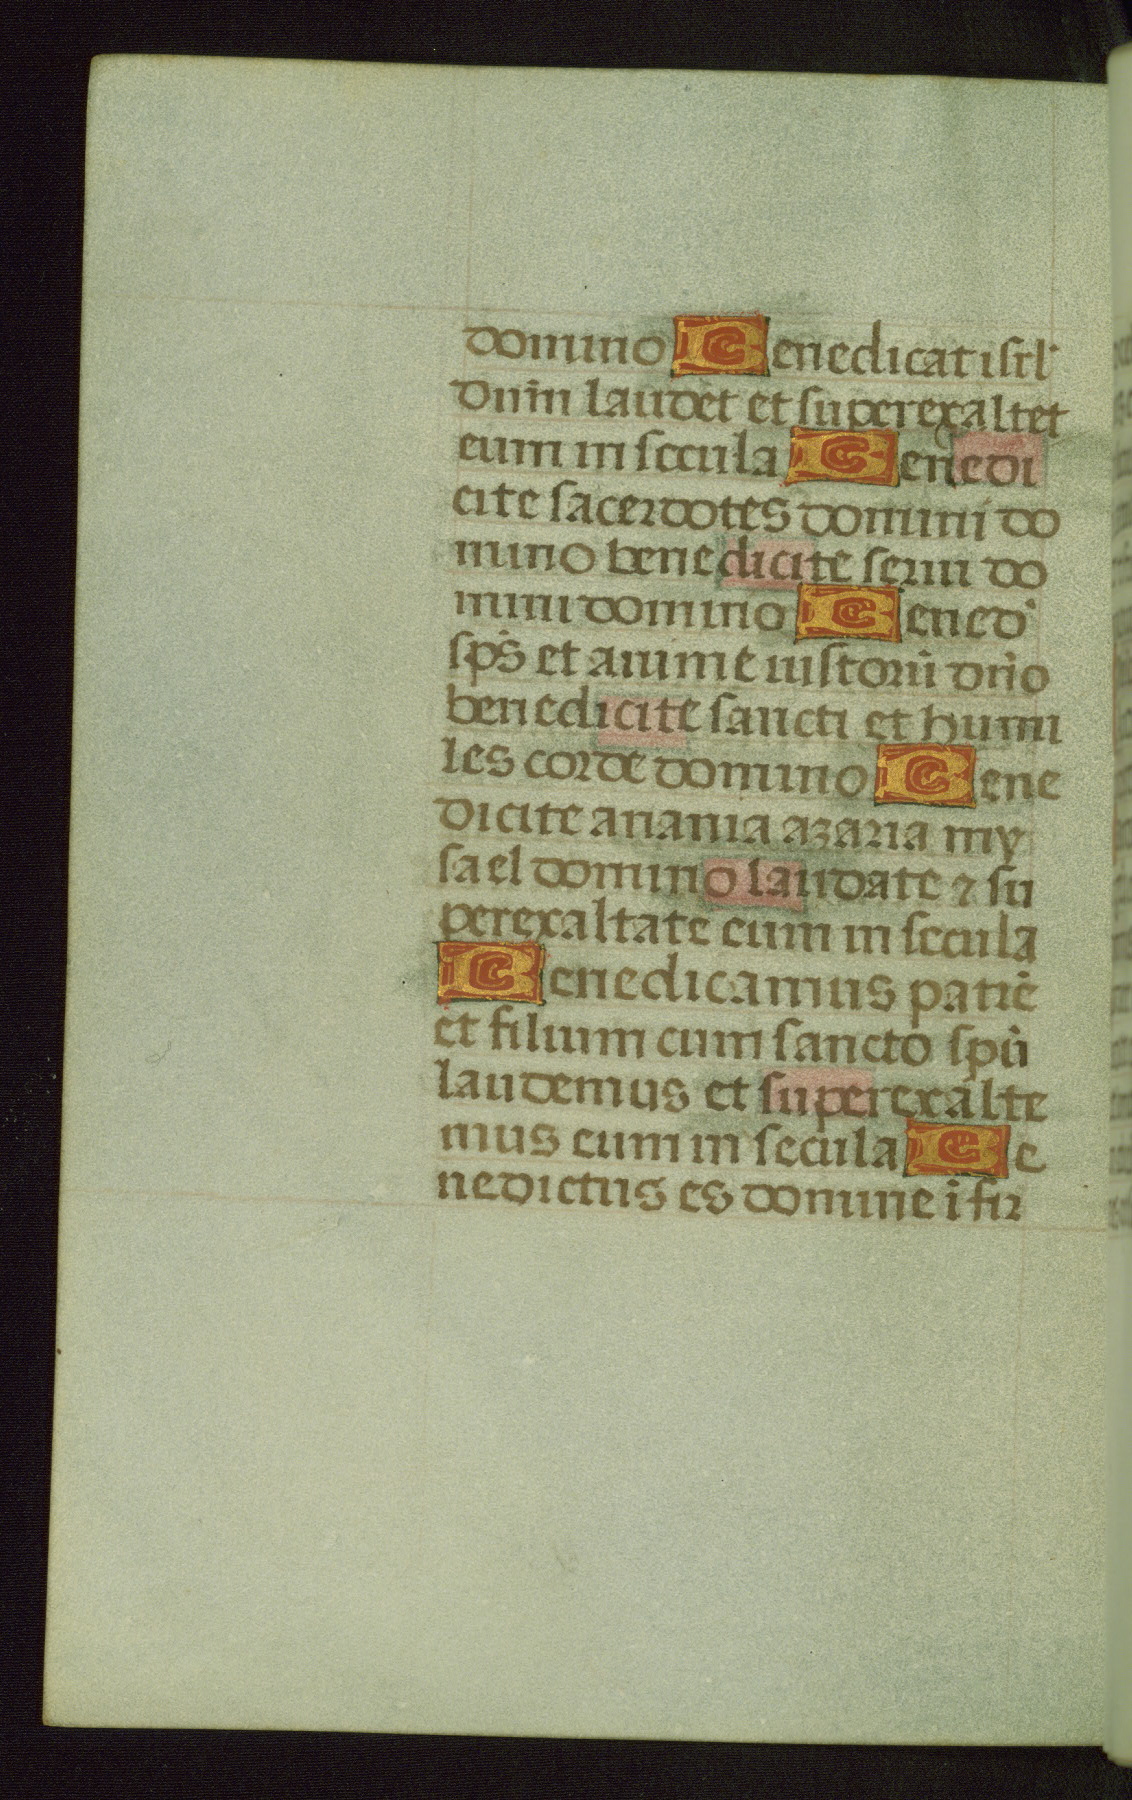 domino Benedicat isrl'
Dnm̄ laudet et superexaltet
eum in secula Benedi
cite sacerdotes domini do
mino benedicite serui do
mini domino Bened'
sps̄ et anime iustorū dn̄o
benedicite sancti et humi
les corde domino Bene
dicite anania azaria my
sael domino laudate ⁊ su
perexaltate eum in secula
Benedicamus patrē
et filium cum sancto spū
laudemus et superexalte
mus eum in secula Be
nedictus es domine ī fir